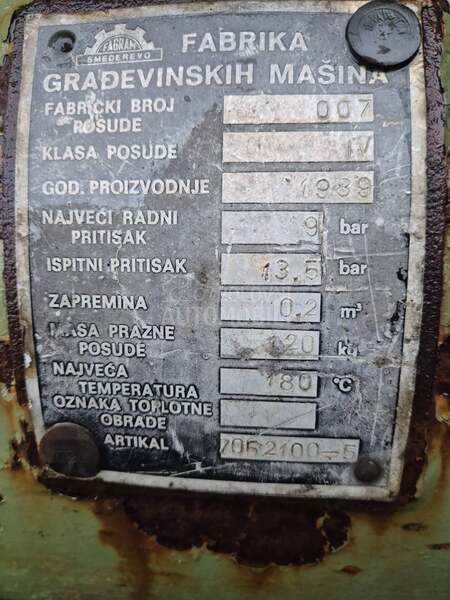 FAGRAM
SMEDEREVO
FABRIKA
GRAĐEVINSKIH MAŠINA
FABRIČKI BROJ
POSUDE 007
KLASA POSUDE IV
GOD. PROIZVODNJE 1989
NAJVEĆI RADNI
PRITISAK 9 bar
ISPITNI PRITISAK 13.5 bar
ZAPREMINA 0.2 m³
MASA PRAZNE
POSUDE 120 kg
NAJVEĆA
TEMPERATURA 180 °C
OZNAKA TOPLOTNE
OBRADE
ARTIKAL 7052100-5